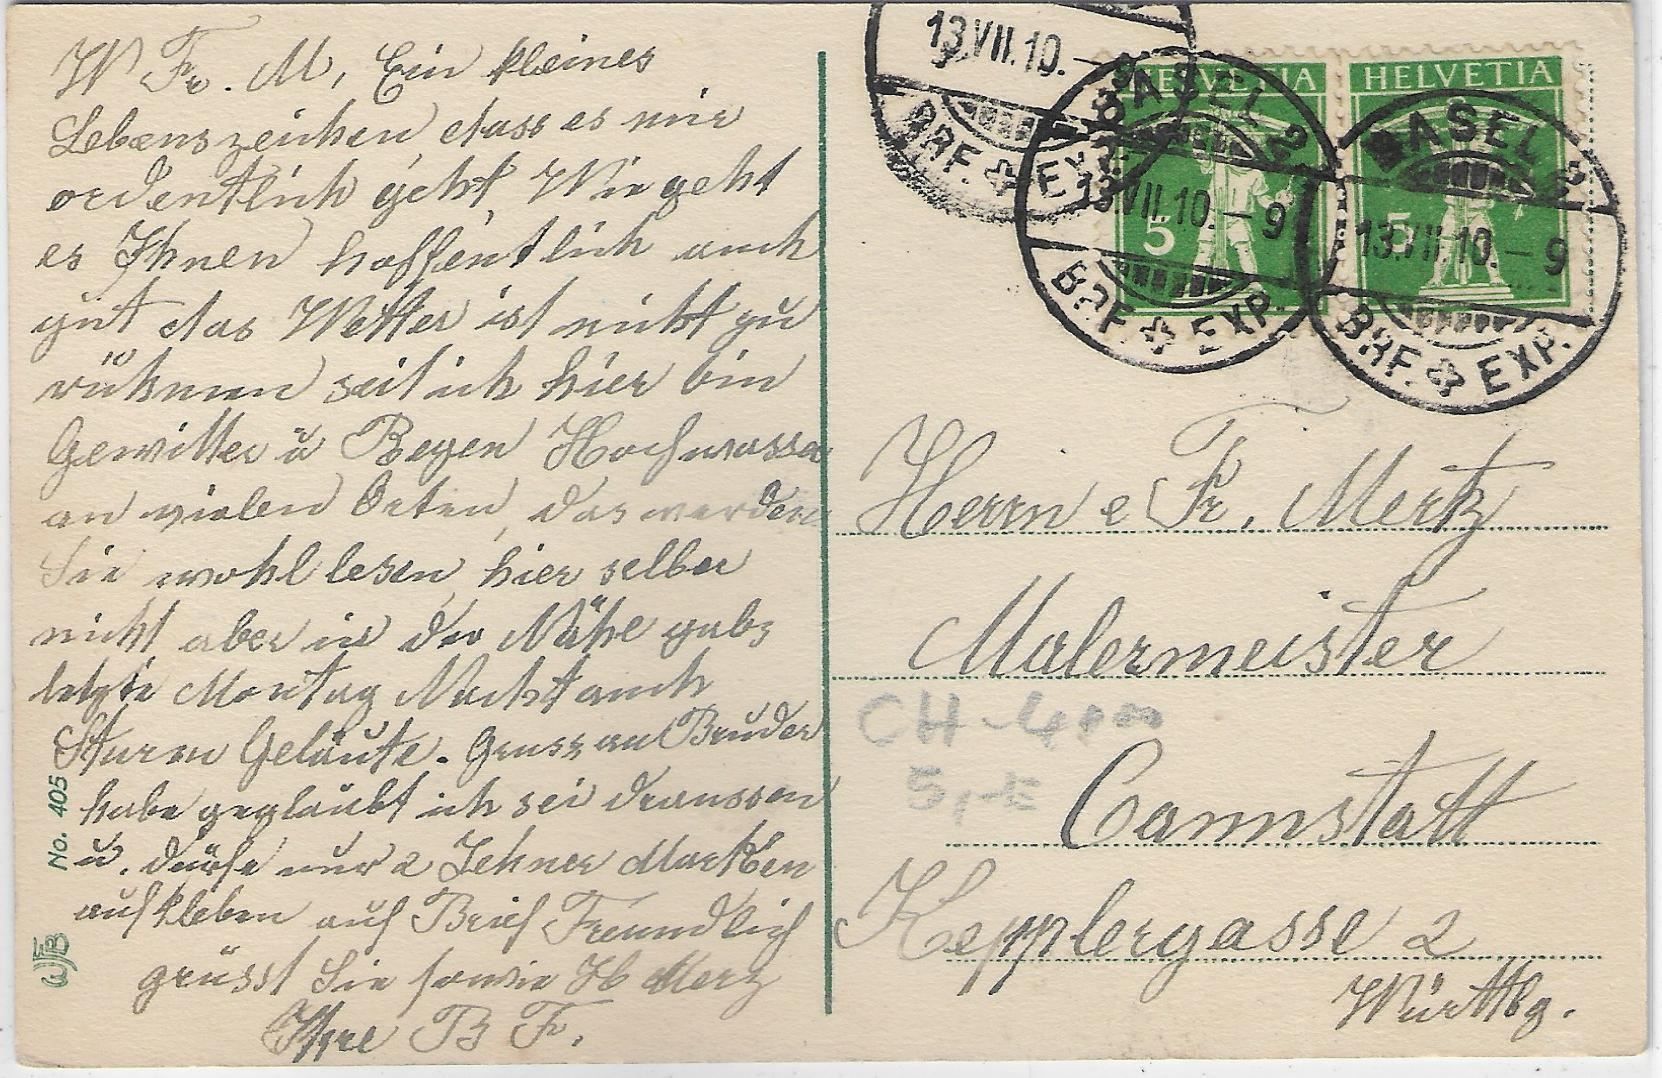 W Fr. M, Ein kleines
Lebenszeichen dass es mir
ordentlich geht, Wie geht
es Ihnen hoffentlich auch
gut das Wetter ist nicht zu
rühmen seit ich hier bin
Gewitter ü Regen Hochwasser
an vielen Orten, das werden
Sie wohl lesen, hier selber
nicht aber in der Nähe gabs
letzte Montag Nacht auch
Sturm Geläute. Gruss an Bruder
habe geglaubt ich sei draussen
u. dürfe nur 2 Zehner Marken
aufkleben auf Brief Freundlich
grüsst Sie sowie H Merz
Ihre B F.
No. 405
WFB
13.VII.10.-9
BRF. EXP.
HELVETIA
HELVETIA
5
5
BASEL 2
13.VII.10.-9
BRF. EXP.
BASEL 2
13.VII.10.-9
BRF. EXP.
Herrn e Fr. Mertz
Malermeister
CH-4000
5,-E
Cannstatt
Kepplergasse 2
Württbg.